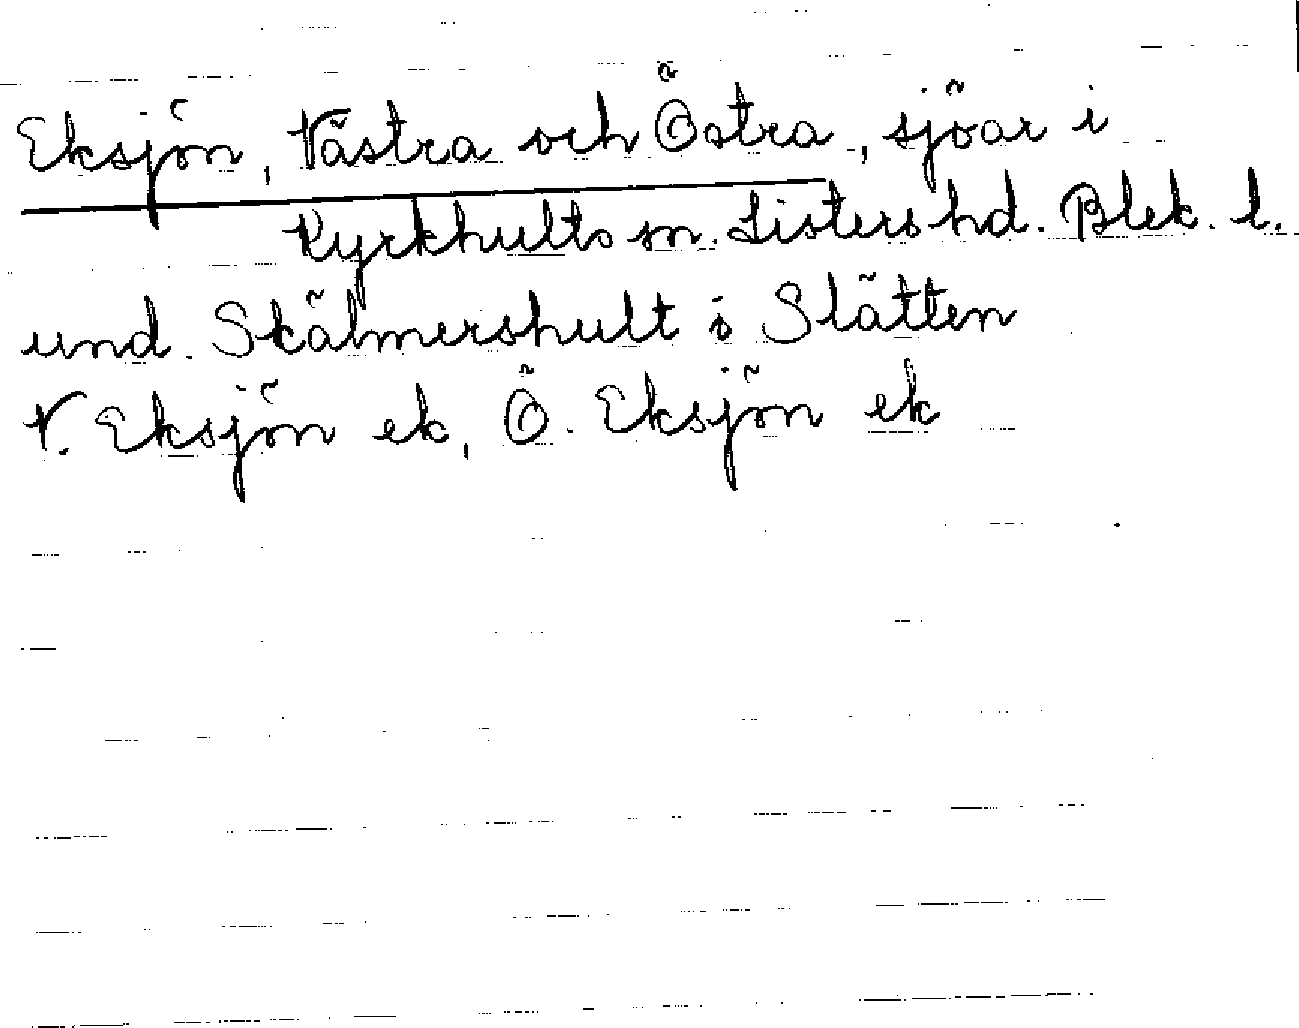 Eksjön, Västra och Östra, sjöar i
Kyrkhults sn. Listers hd. Blek. l.
und. Skälmershult i Slätten
V. Eksjön ek, Ö. Eksjön ek